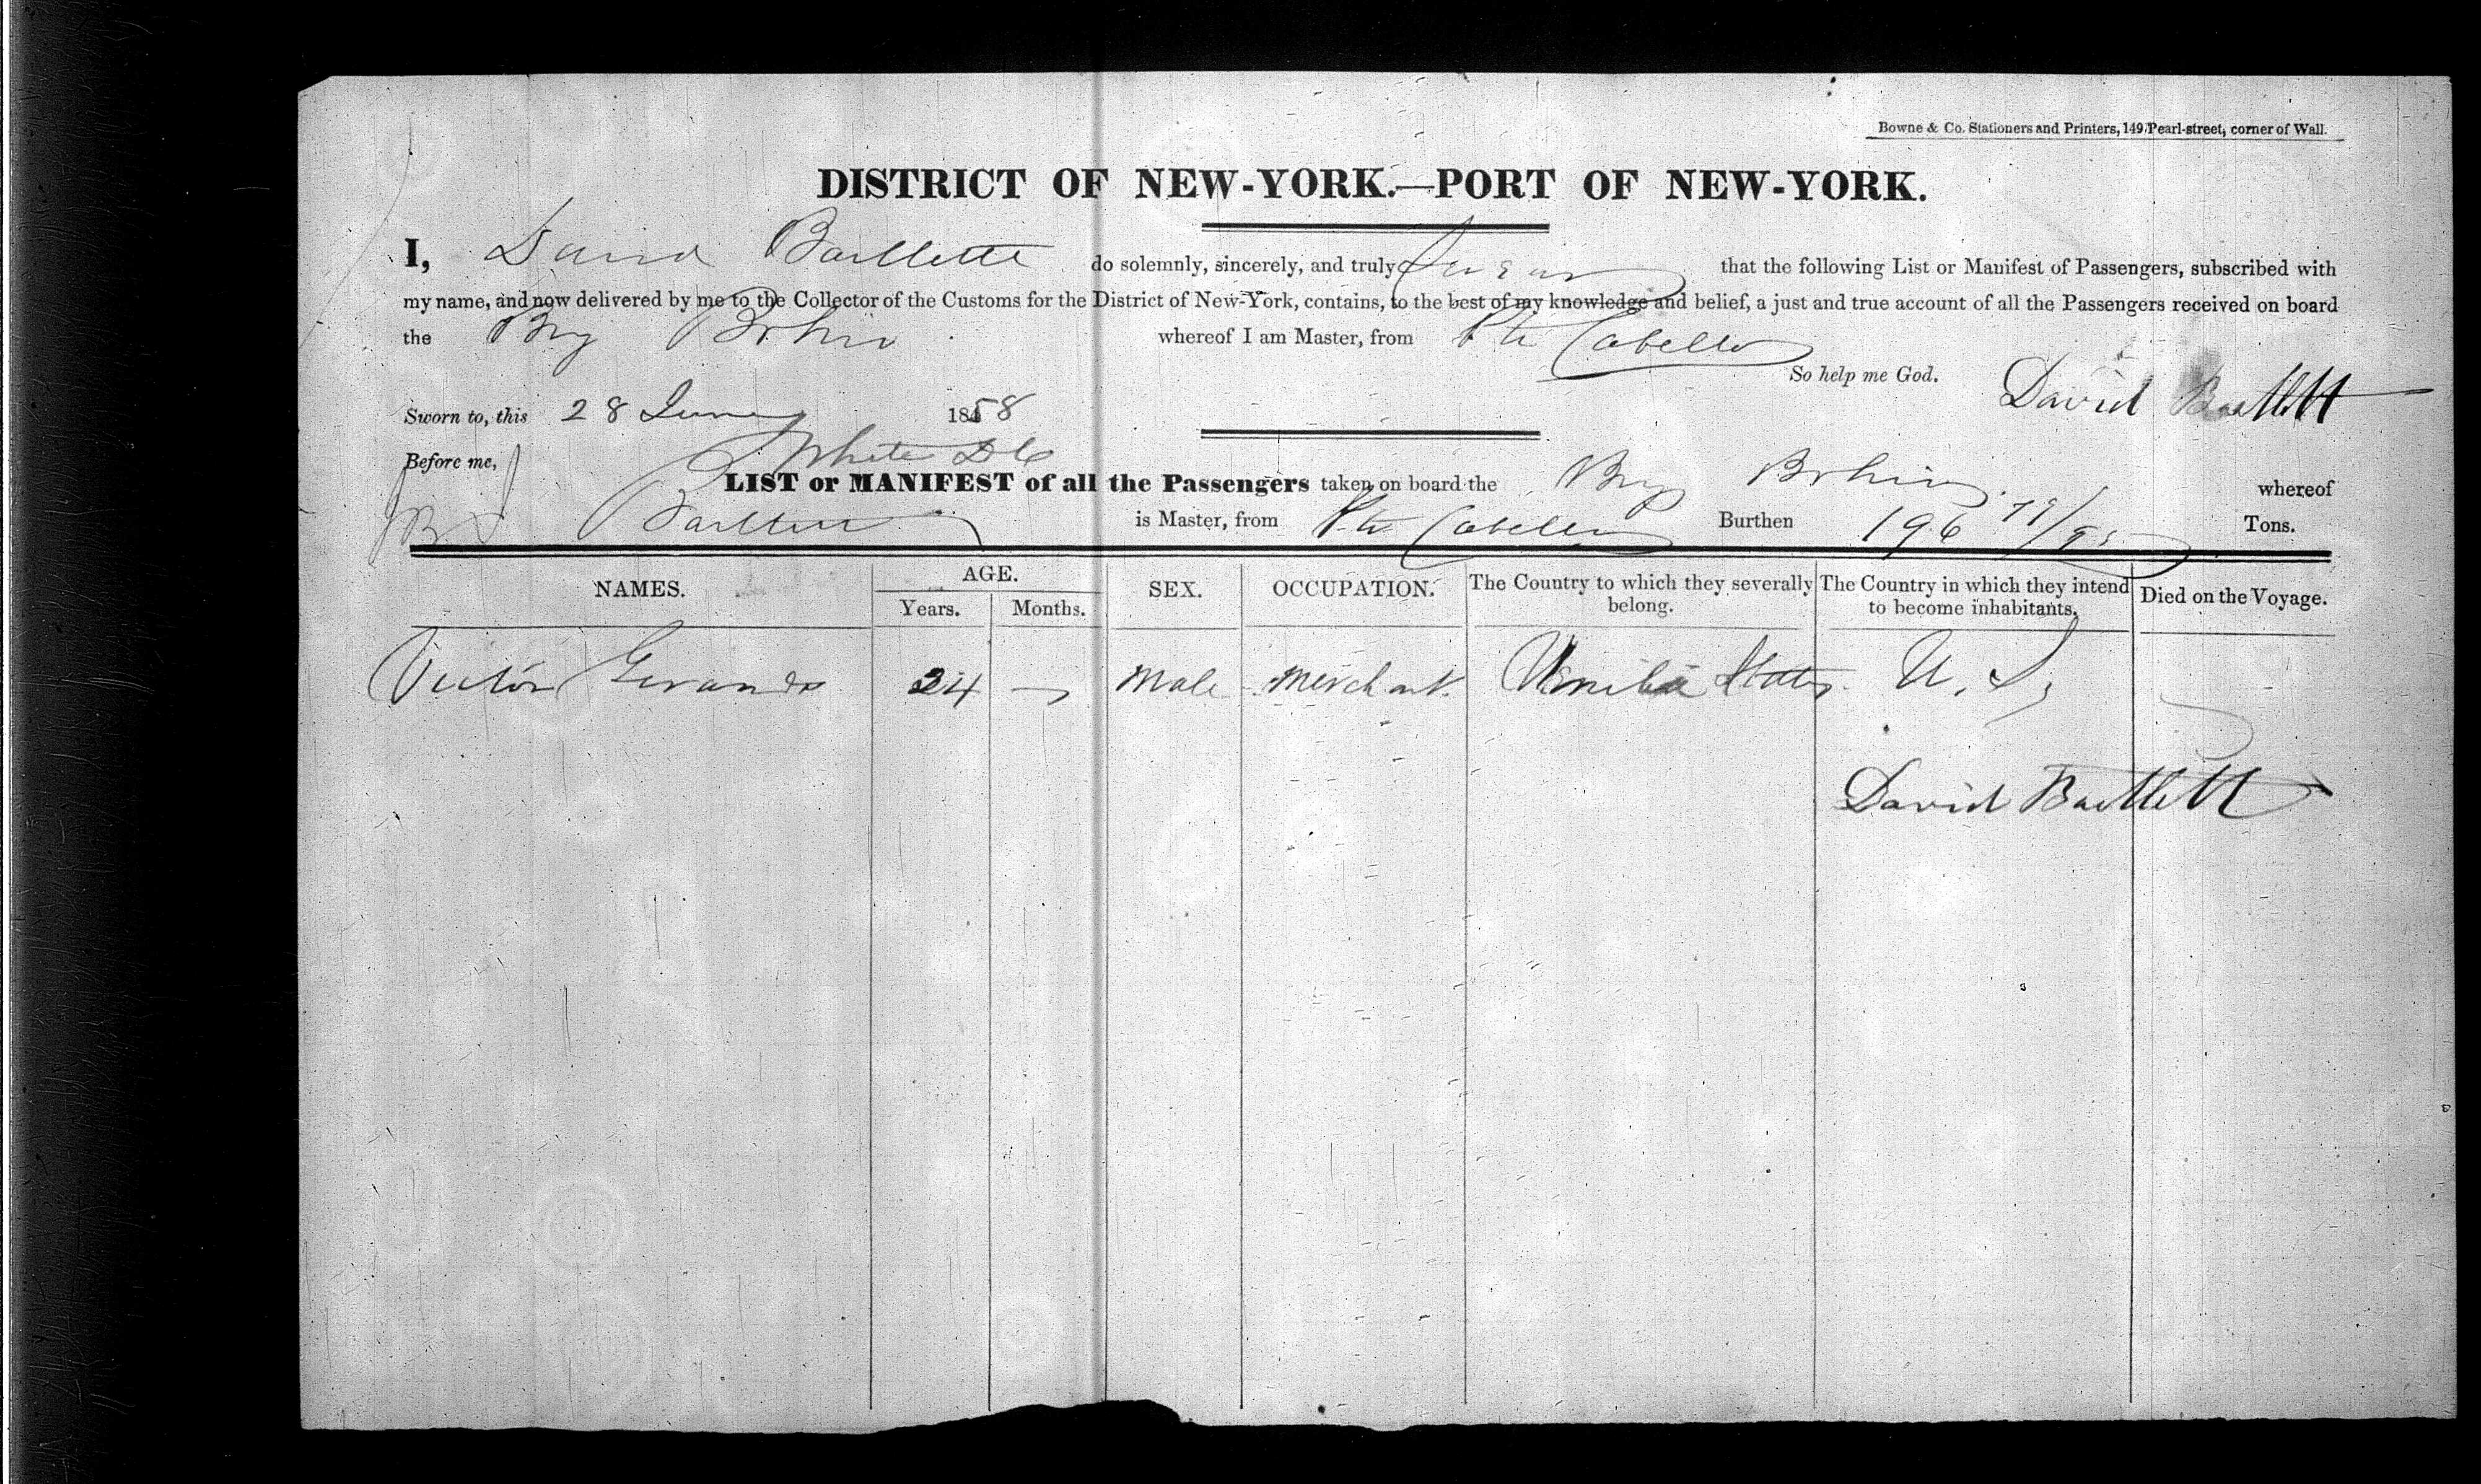 Bowne & Co. Stationers and Printers, 149 Pearl-street, corner of Wall.
DISTRICT OF NEW-YORK.—PORT OF NEW-YORK.
I, David Bartlette do solemnly, sincerely, and truly swear that the following List or Manifest of Passengers, subscribed with
my name, and now delivered by me to the Collector of the Customs for the District of New-York, contains, to the best of my knowledge and belief, a just and true account of all the Passengers received on board
the Brig whereof I am Master, from Pto Cabello
So help me God. David Bartlett
Sworn to, this 28 June 1858
Before me, White
LIST or MANIFEST of all the Passengers taken on board the Brig whereof
Bartlett is Master, from Pto Cabello Burthen 196 Tons.
NAMES. AGE. SEX. OCCUPATION. The Country to which they severally belong. The Country in which they intend to become inhabitants. Died on the Voyage.
Years. Months.
Victor 24 — Male Merchant United States U. S.
David Bartlett